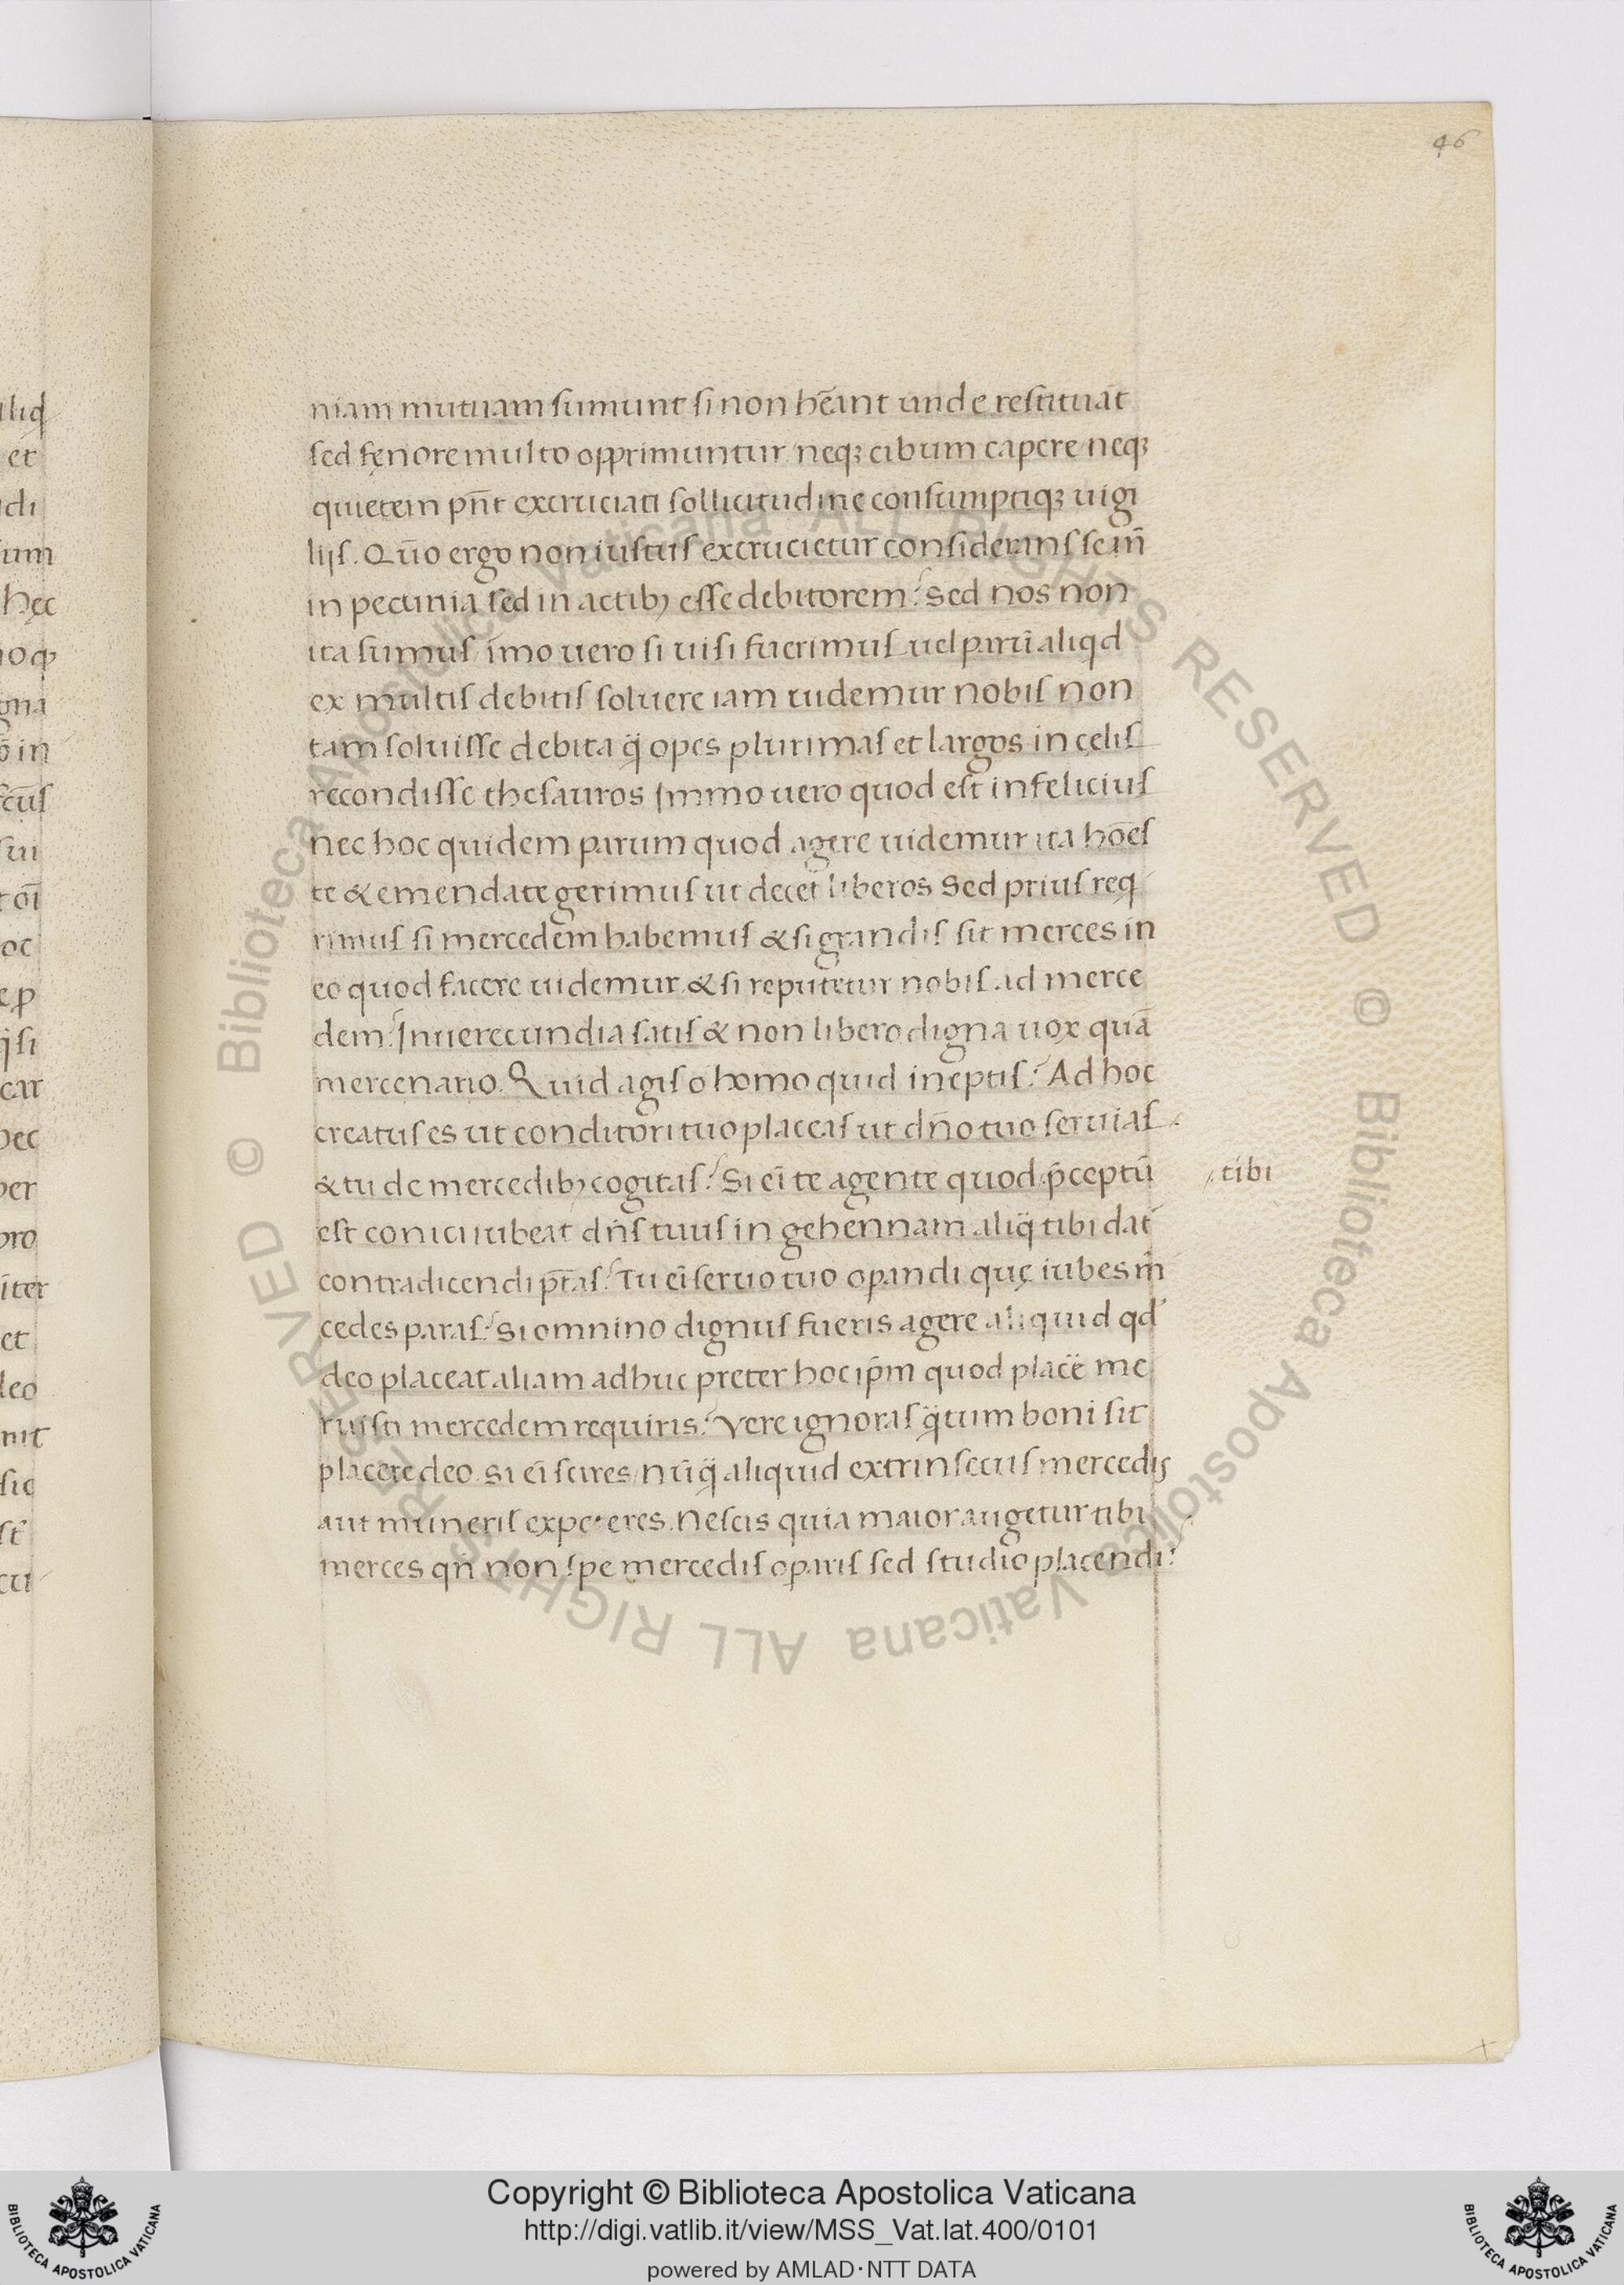 46
niam mutuam sumunt si non hēant unde restituāt
sed fęnore multo opprimuntur neqꝫ cibum capere neqꝫ
quietem pn̄t excruciati sollicitudine consumptiqꝫ uigi
lijs. Quō ergo non iustus excrucietur considerans se in̄
in pecunia sed in actibꝫ esse debitorem? Sed nos non
ita sumus / imo uero si uisi fuerimus uel parū aliqd
ex multis debitis soluere iam uidemur nobis non
tam soluisse debita q̄ opes plurimas et largos in cęlis
recondisse thesauros Immo uero quod est infelicius
nec hoc quidem parum quod agere uidemur ita hōes
te & emendate gerimus ut decet liberos Sed prius req
rimus si mercedem habemus & si grandis sit merces in
eo quod facere uidemur & si reputetur nobis ad merce
dem? Inuerecundia satis & non libero digna uox quā
mercenario. Quid agis o homo quid ineptis? Ad hoc
creatus es ut conditori tuo placeas ut dn̄o tuo seruias
& tu de mercedibꝫ cogitas? Si ei te agente quod p̄ceptū
tibi
est conici iubeat dn̄s tuus in gehennam aliq̄ tibi dat
contradicendi ptās? Tu eī seruo tuo opandi quę iubes m̄
cedes paras? Si omnino dignus fueris agere aliquid qd
deo placeat aliam adhuc preter hoc ip̄m quod place͞ me
ruisti mercedem requiris? Vere ignoras q̄tum boni sit
placere deo. Si eī scires / nūq̄ aliquid extrinsecus mercedis
aut muneris expeteres. Nescis quia maior augetur tibi
merces qn̄ non spe mercedis oparis sed studio placendi?
liq
et
di
sum
hęc
gna
in
cus
sui
oī
oc
si
car
hec
per
pro
iter
et
deo
nit
sic
st
cu
© Biblioteca Apostolica Vaticana ALL RIGHTS RESERVED © Biblioteca Apostolica Vaticana ALL RIGHTS RESERVED
Copyright © Biblioteca Apostolica Vaticana
http://digi.vatlib.it/view/MSS_Vat.lat.400/0101
powered by AMLAD·NTT DATA
BIBLIOTECA APOSTOLICA VATICANA
BIBLIOTECA APOSTOLICA VATICANA